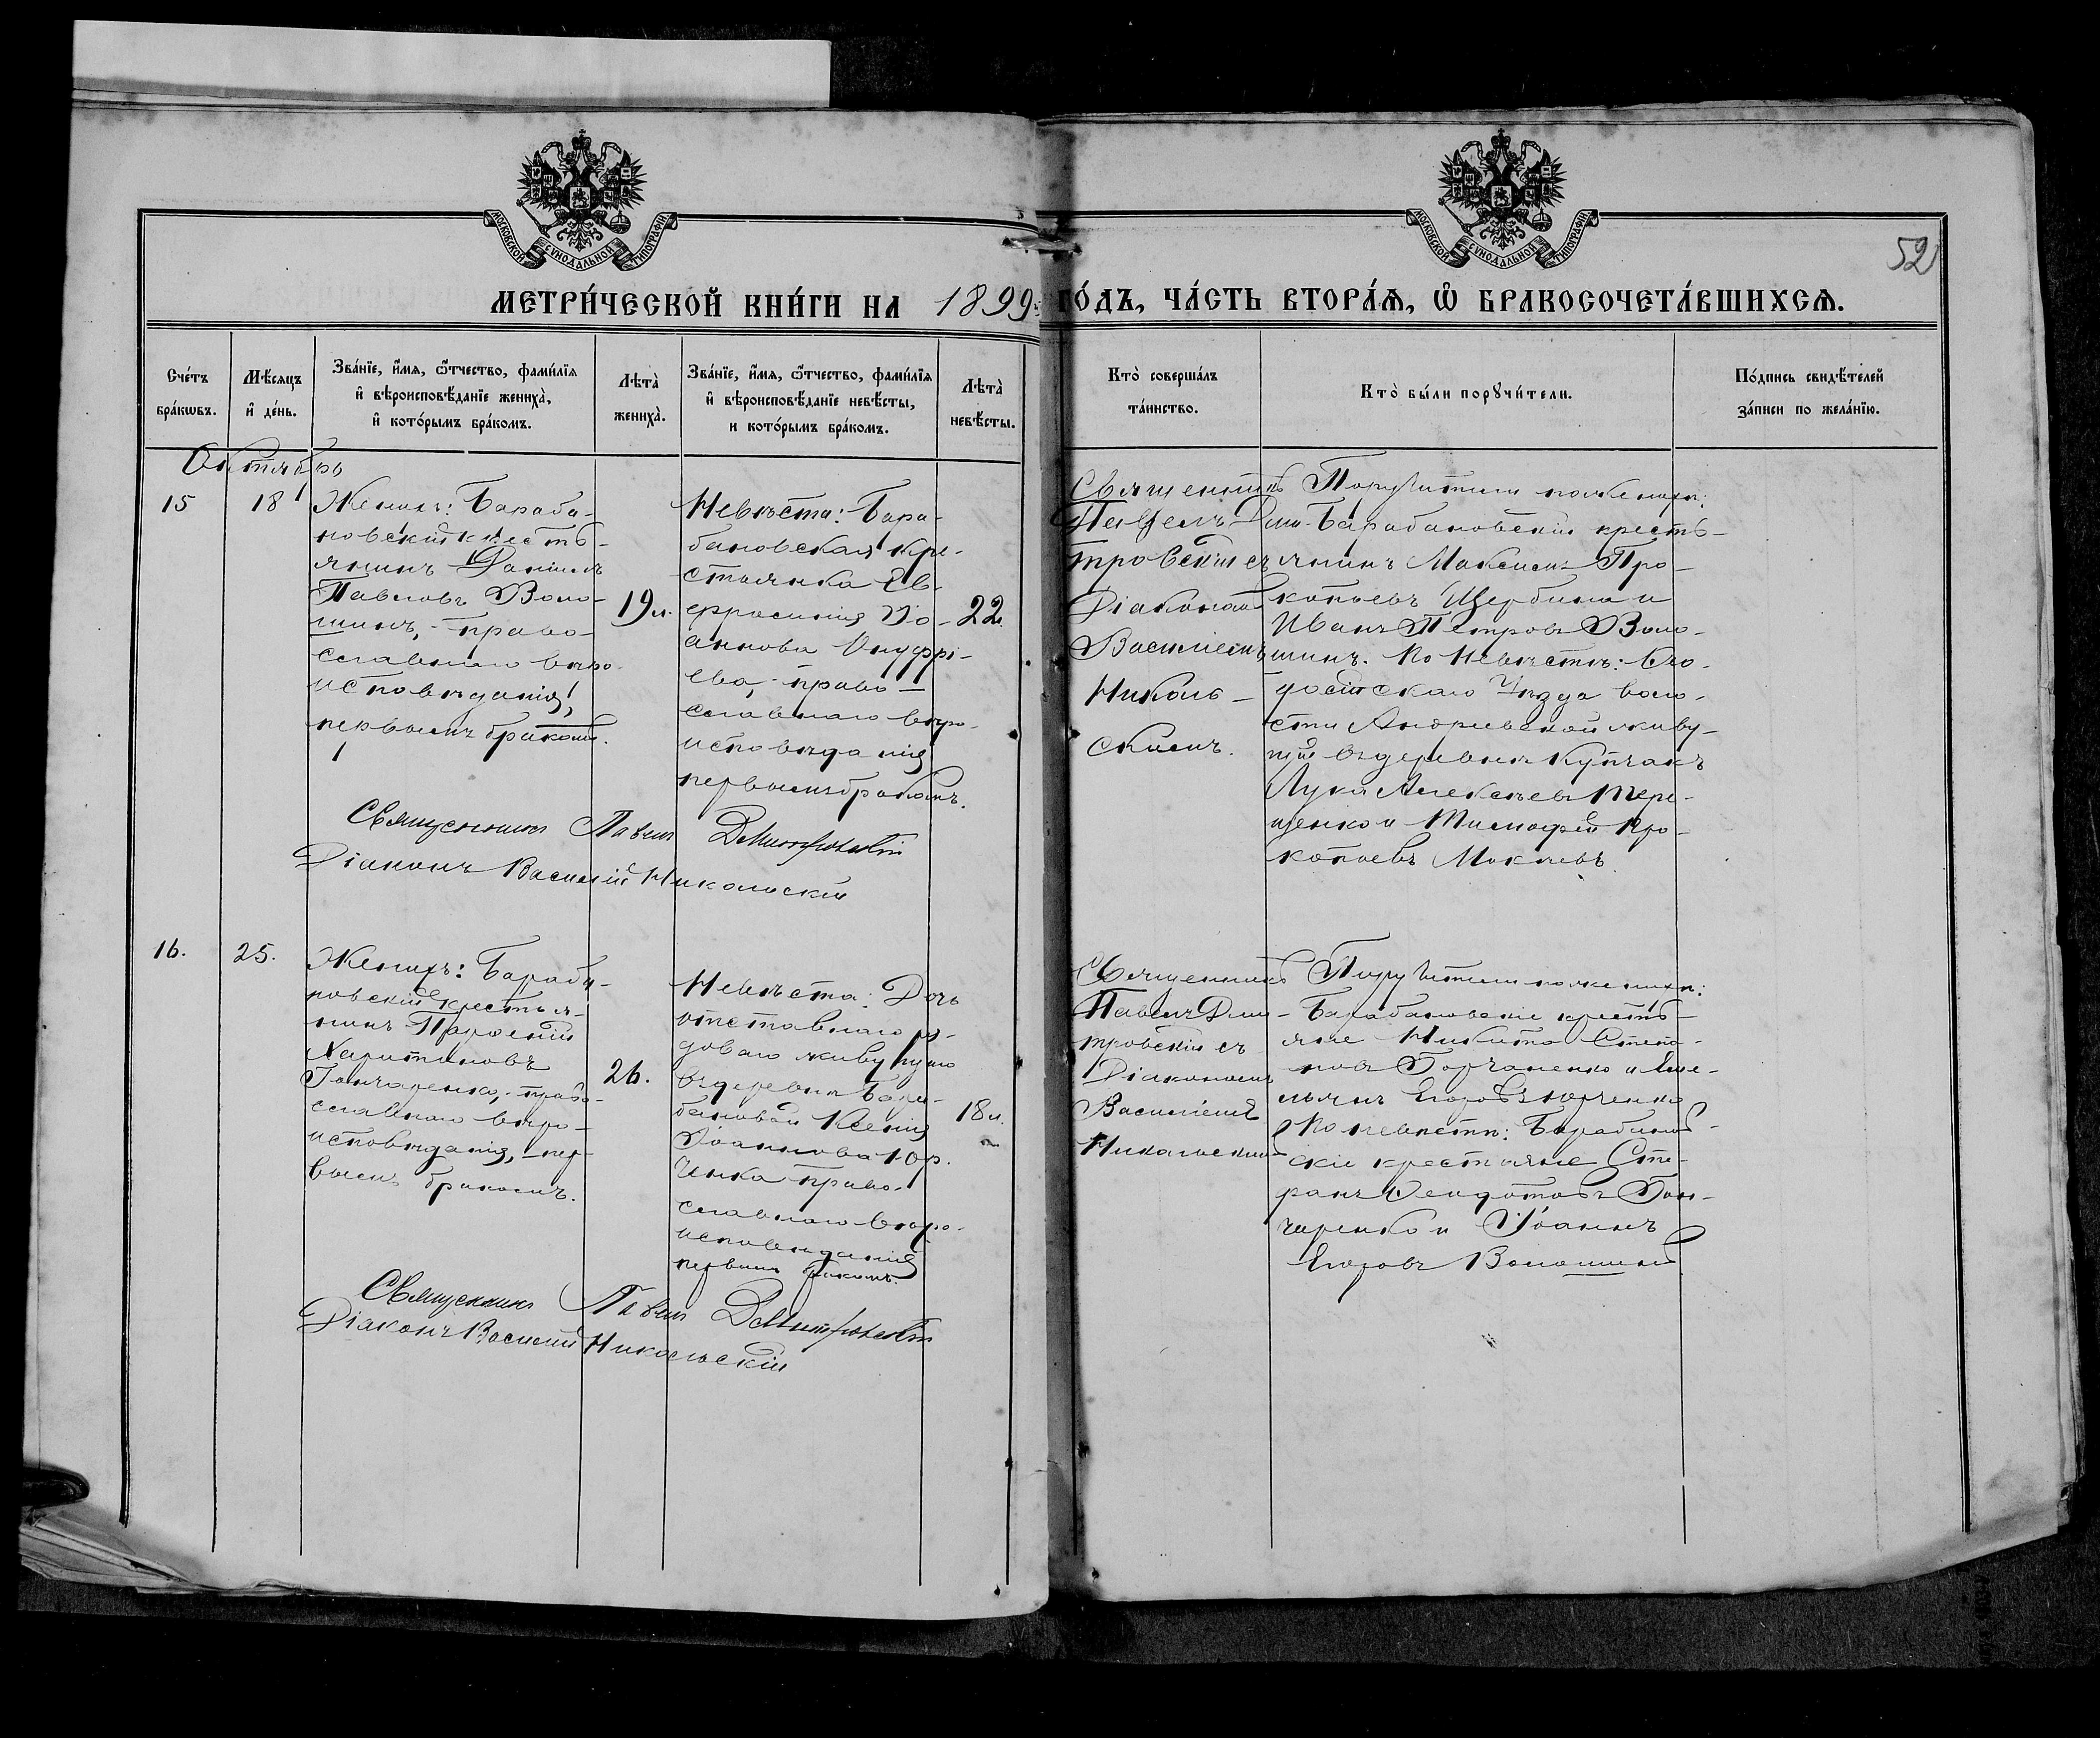 МОСКОВСКОЙ СѴНОДАЛЬНОЙ ТИПОГРАФІИ
МОСКОВСКОЙ СѴНОДАЛЬНОЙ ТИПОГРАФІИ
52
МЕТРИ́ЧЕСКОЙ КНИ́ГИ НА 1899 ГО́ДЪ, ЧА́СТЬ ВТОРА́Ѧ, Ѽ БРАКОСОЧЕТА́ВШИХСѦ.
Сче́тъ бра́кѡвъ.
Мѣ́сяцъ и҆ де́нь.
Зва́нїе, и҆́мѧ, ѻ҆́тчество, фами́лїѧ
и҆ вѣроисповѣ́данїе жениха̀,
и҆ кото́рымъ бра́комъ.
Лѣта̀ жениха̀.
Зва́нїе, и҆́мѧ, ѻ҆́тчество, фами́лїѧ
и҆ вѣроисповѣ́данїе невѣ́сты,
и кото́рымъ бра́комъ.
Лѣта̀ невѣ́сты.
Кто̀ соверша́лъ та́инство.
Кто̀ бы́ли порꙋчи́тели.
По́дпись свидѣ́телей за́писи по жела́нїю.
Октябрь
15
18
Женихъ: Бараба-
новскій кресть-
янинъ Даніилъ
Павловъ Воло-
шинъ, право-
славнаго вѣро-
исповѣданія,
первымъ бракомъ.
19 л.
Невѣста: Бара-
бановская кре-
стьянка Ев-
фросинія Іо-
аннова Онуфрі-
ева, право-
славнаго вѣро-
исповѣданія
первымъ бракомъ.
22
Священникъ
Павелъ Дми-
тровскій съ
Діакономъ
Василіемъ
Николь-
скимъ.
Поручители по женихѣ:
Барабановскій кресть-
янинъ Максимъ Про-
копьевъ Щербина и
Иванъ Петровъ Воло-
шинъ. По невѣстѣ: Ѳео-
досійскаго Уѣзда воло-
сти Андреевской живу-
щіе въ деревнѣ
Лука Алексѣевъ Тере-
щенко и Тимофей Про-
копьевъ
Священникъ Павелъ Дмитровскій
Діаконъ Василій Никольскій
16.
25.
Женихъ: Бараба-
новскій крестья-
нинъ Парфеній
Харитоновъ
Гончаренко, право-
славнаго вѣро-
исповѣданія, пер-
вымъ бракомъ.
26.
Невѣста: Дочь
отставнаго ря-
доваго живущаго
въ деревнѣ Бара-
бановой Ксенія
Іоаннова Юр-
ченко право-
славнаго вѣро-
исповѣданія
первымъ бракомъ.
18 л.
Священникъ
Павелъ Дми-
тровскій съ
Діакономъ
Василіемъ
Никольскимъ
Поручители по женихѣ:
Барабановскіе кресть-
яне Никита Степа-
новъ и Еме-
льянъ Егоровъ Юрченко
По невѣстѣ: Барабанов-
скіе крестьяне Сте-
фанъ Ѳеодотовъ Гон-
чаренко и Іоаннъ
Егоровъ Волошинъ.
Священникъ Павелъ Дмитровскій
Діаконъ Василій Никольскій